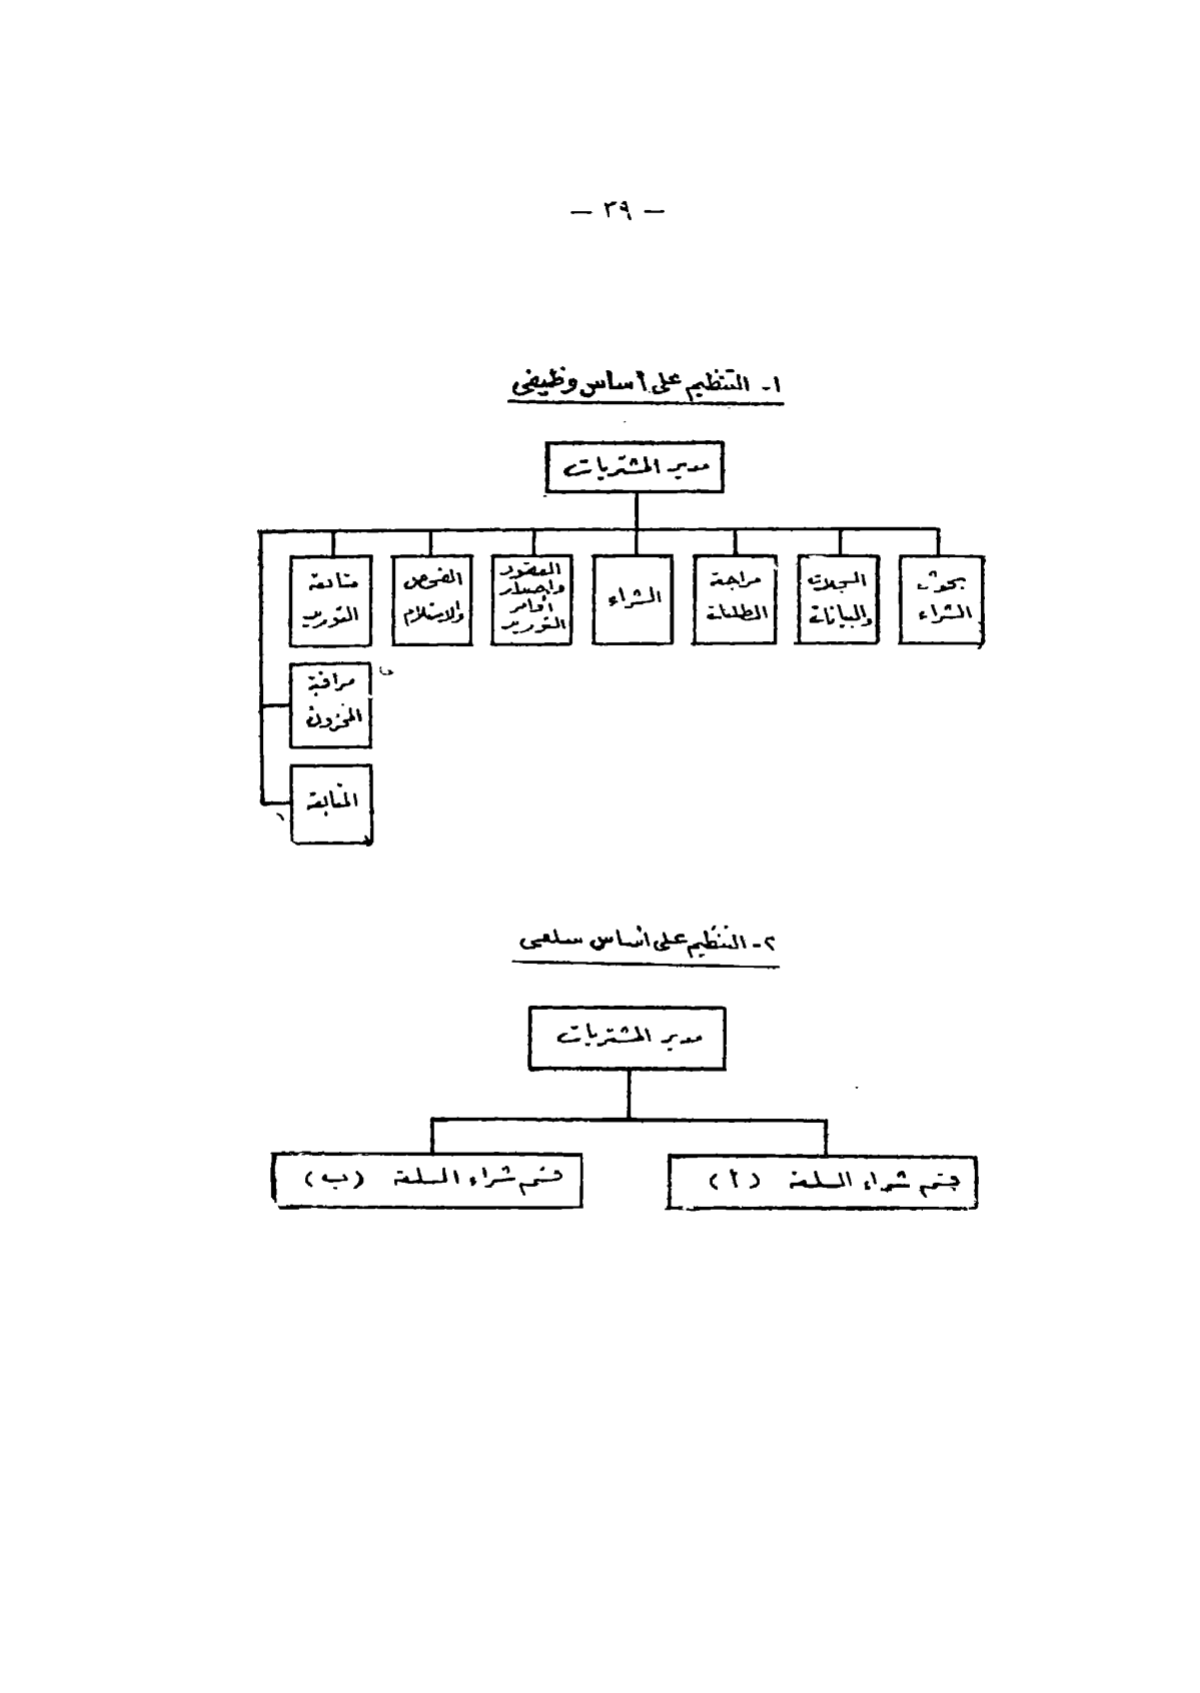 — ٣٩ —
١- التنظيم على أساس وظيفى
مدير المشتريات
بحوث
الشراء
السجلات
والبيانات
مراجعة
الطلبات
الشراء
العقود
وإصدار
أوامر
التوريد
الفحص
والاستلام
متابعة
التوريد
مراقبة
المخزون
المتابعة
٢- التنظيم على أساس سلعى
مدير المشتريات
قسم شراء السلعة (أ)
قسم شراء السلعة (ب)